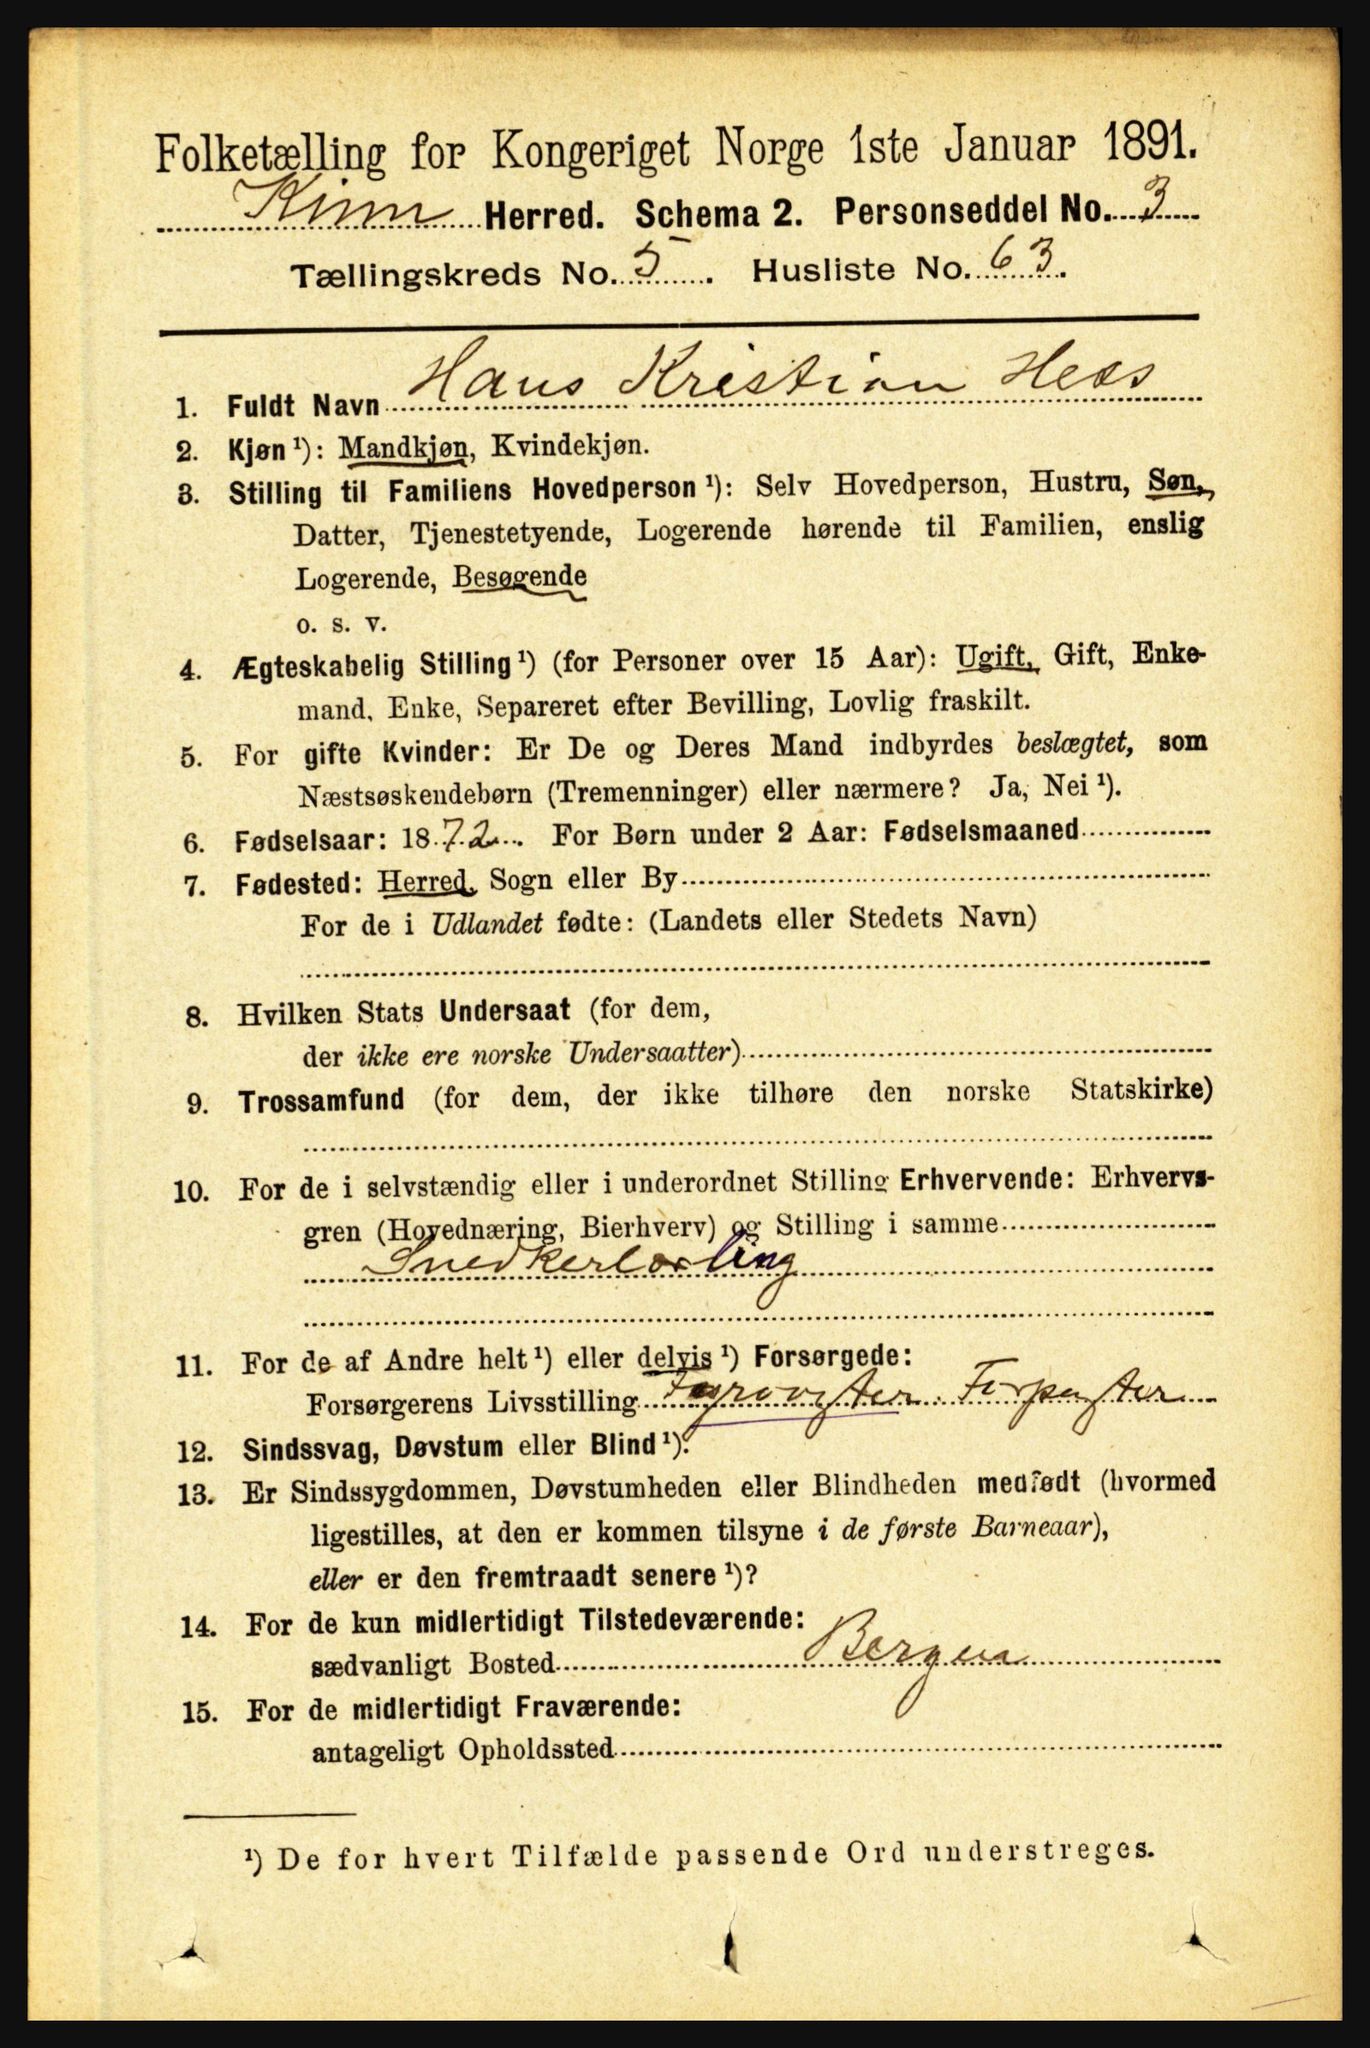 Folketælling for Kongeriget Norge 1ste Januar 1891.
Kinn Herred. Schema 2. Personseddel No. 3
Tællingskreds No. 5. Husliste No. 63.
1. Fuldt Navn Hans Kristian Hess
2. Kjøn ¹): Mandkjøn, Kvindekjøn.
3. Stilling til Familiens Hovedperson ¹): Selv Hovedperson, Hustru, Søn,
Datter, Tjenestetyende, Logerende hørende til Familien, enslig
Logerende, Besøgende
o. s. v.
4. Ægteskabelig Stilling ¹) (for Personer over 15 Aar): Ugift, Gift, Enke-
mand, Enke, Separeret efter Bevilling, Lovlig fraskilt.
5. For gifte Kvinder: Er De og Deres Mand indbyrdes beslægtet, som
Næstsøskendebørn (Tremenninger) eller nærmere? Ja, Nei ¹).
6. Fødselsaar: 1872. For Børn under 2 Aar: Fødselsmaaned
7. Fødested: Herred, Sogn eller By
For de i Udlandet fødte: (Landets eller Stedets Navn)
8. Hvilken Stats Undersaat (for dem,
der ikke ere norske Undersaatter)
9. Trossamfund (for dem, der ikke tilhøre den norske Statskirke)
10. For de i selvstændig eller i underordnet Stilling Erhvervende: Erhvervs-
gren (Hovednæring, Bierhverv) og Stilling i samme
Snedkerlærling
11. For de af Andre helt ¹) eller delvis ¹) Forsørgede:
Forsørgerens Livsstilling
12. Sindssvag, Døvstum eller Blind ¹).
13. Er Sindssygdommen, Døvstumheden eller Blindheden medfødt (hvormed
ligestilles, at den er kommen tilsyne i de første Barneaar),
eller er den fremtraadt senere ¹)?
14. For de kun midlertidigt Tilstedeværende:
sædvanligt Bosted Bergen
15. For de midlertidigt Fraværende:
antageligt Opholdssted
¹) De for hvert Tilfælde passende Ord understreges.